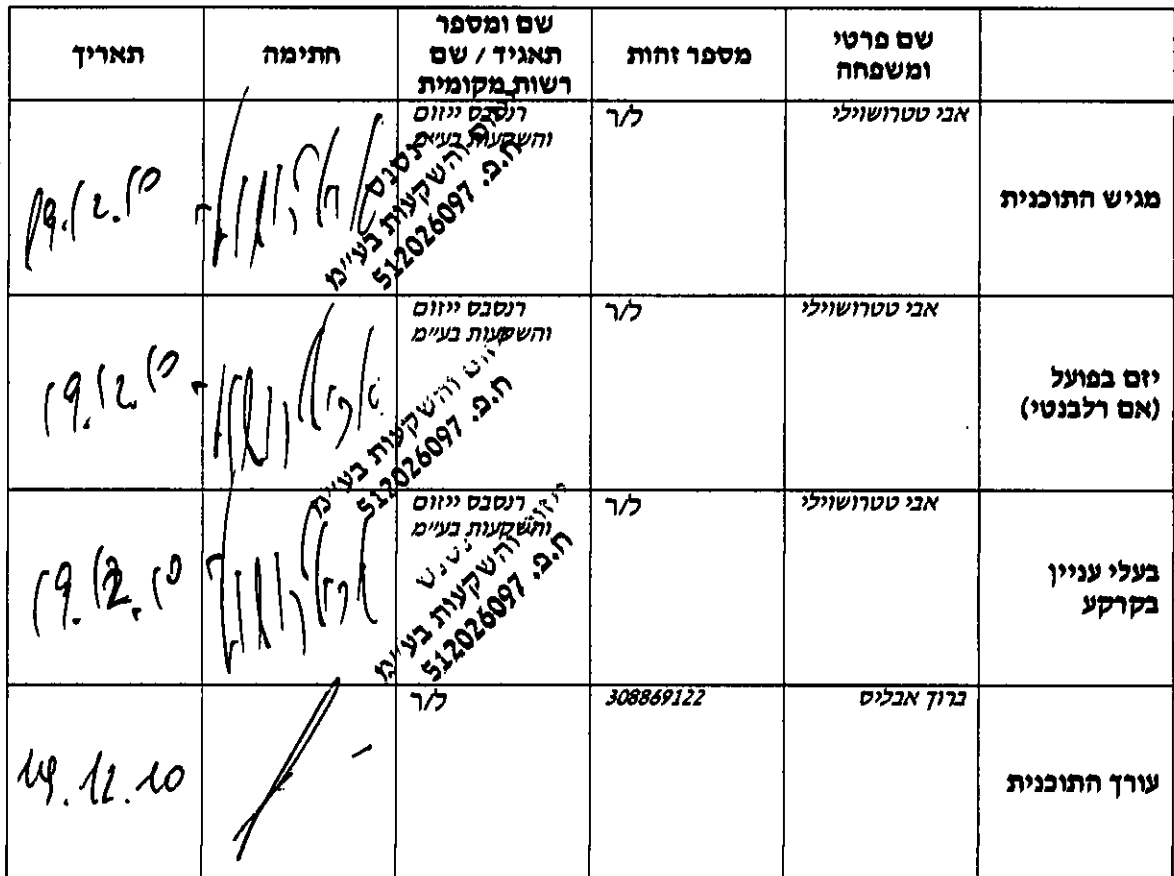 שם פרטי ומשפחה
מספר זהות
שם ומספר תאגיד / שם רשות מקומית
חתימה
תאריך
מגיש התוכנית
אבי טטרושוילי
ל/ר
רנסבס ייזום
והשקעות בע״מ
והשקעות בע״מ
ח.פ. 512026097
19.12.10
יזם בפועל
(אם רלבנטי)
אבי טטרושוילי
ל/ר
רנסבס ייזום
והשקעות בע״מ
והשקעות בע״מ
ח.פ. 512026097
19.12.10
בעלי עניין
בקרקע
אבי טטרושוילי
ל/ר
רנסבס ייזום
והשקעות בע״מ
והשקעות בע״מ
ח.פ. 512026097
19.12.10
עורך התוכנית
ברוך אבליס
308869122
ל/ר
19.12.10